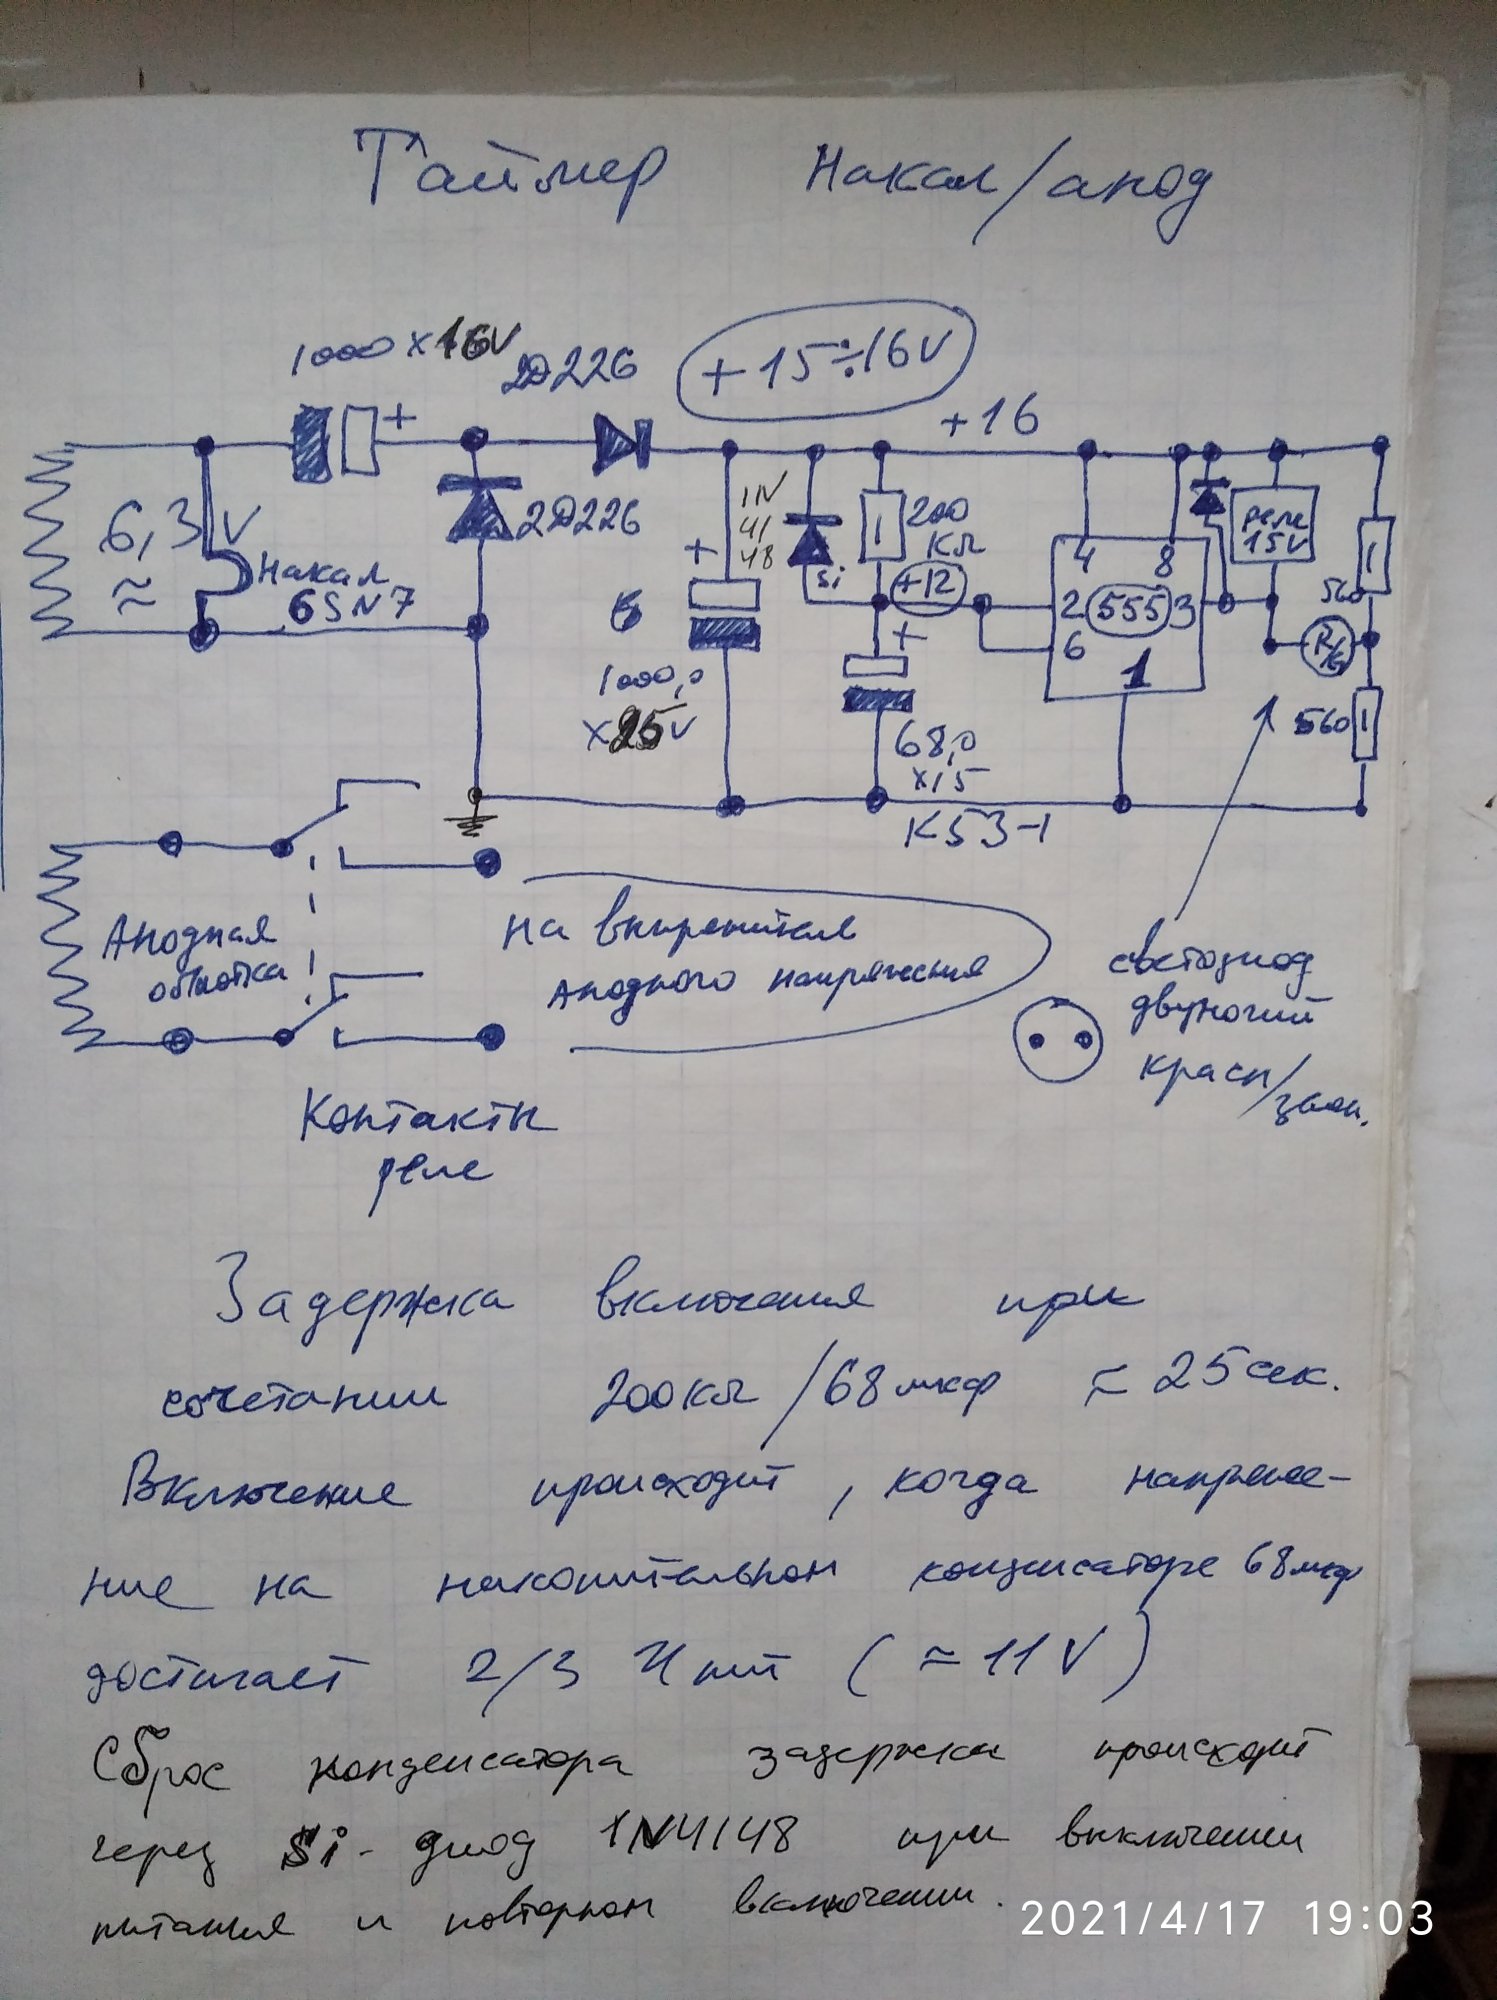 Таймер Накал/анод
1000 x 16V
2Д226
+15÷16V
+16
6,3V
≈
Накал
6SN7
2Д226
+
+
1000,0
x25V
1N
41
48
Si
200
КΩ
+12
+
68,0
x15
К53-1
4 8
2 555 3
6
1
реле
15V
560
R/G
560
Анодная
обмотка
на выпрямитель
анодного напряжения
светодиод
двуногий
красн/зелен.
Контакты
реле
Задержка включения при
сочетании 200КΩ/68мкф ≈ 25сек.
Включение происходит, когда напряже-
ние на накопительном конденсаторе 68мкф
достигает 2/3 Uпит (≈11V)
Сброс конденсатора задержки происходит
через Si-диод 1N4148 при выключении
питания и повторном включении.
2021/4/17 19:03